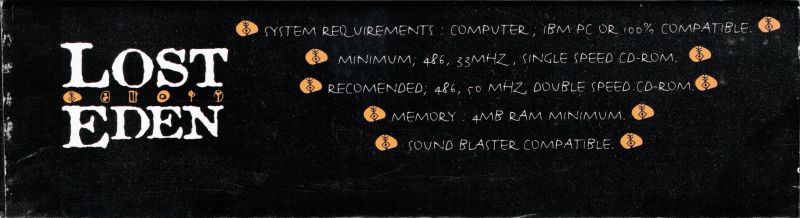 LOST
EDEN
SYSTEM REQUIREMENTS : COMPUTER ; IBM PC OR 100% COMPATIBLE.
MINIMUM; 486, 33MHZ, SINGLE SPEED CD-ROM.
RECOMENDED; 486, 50 MHZ, DOUBLE SPEED CD-ROM.
MEMORY : 4MB RAM MINIMUM.
SOUND BLASTER COMPATIBLE.